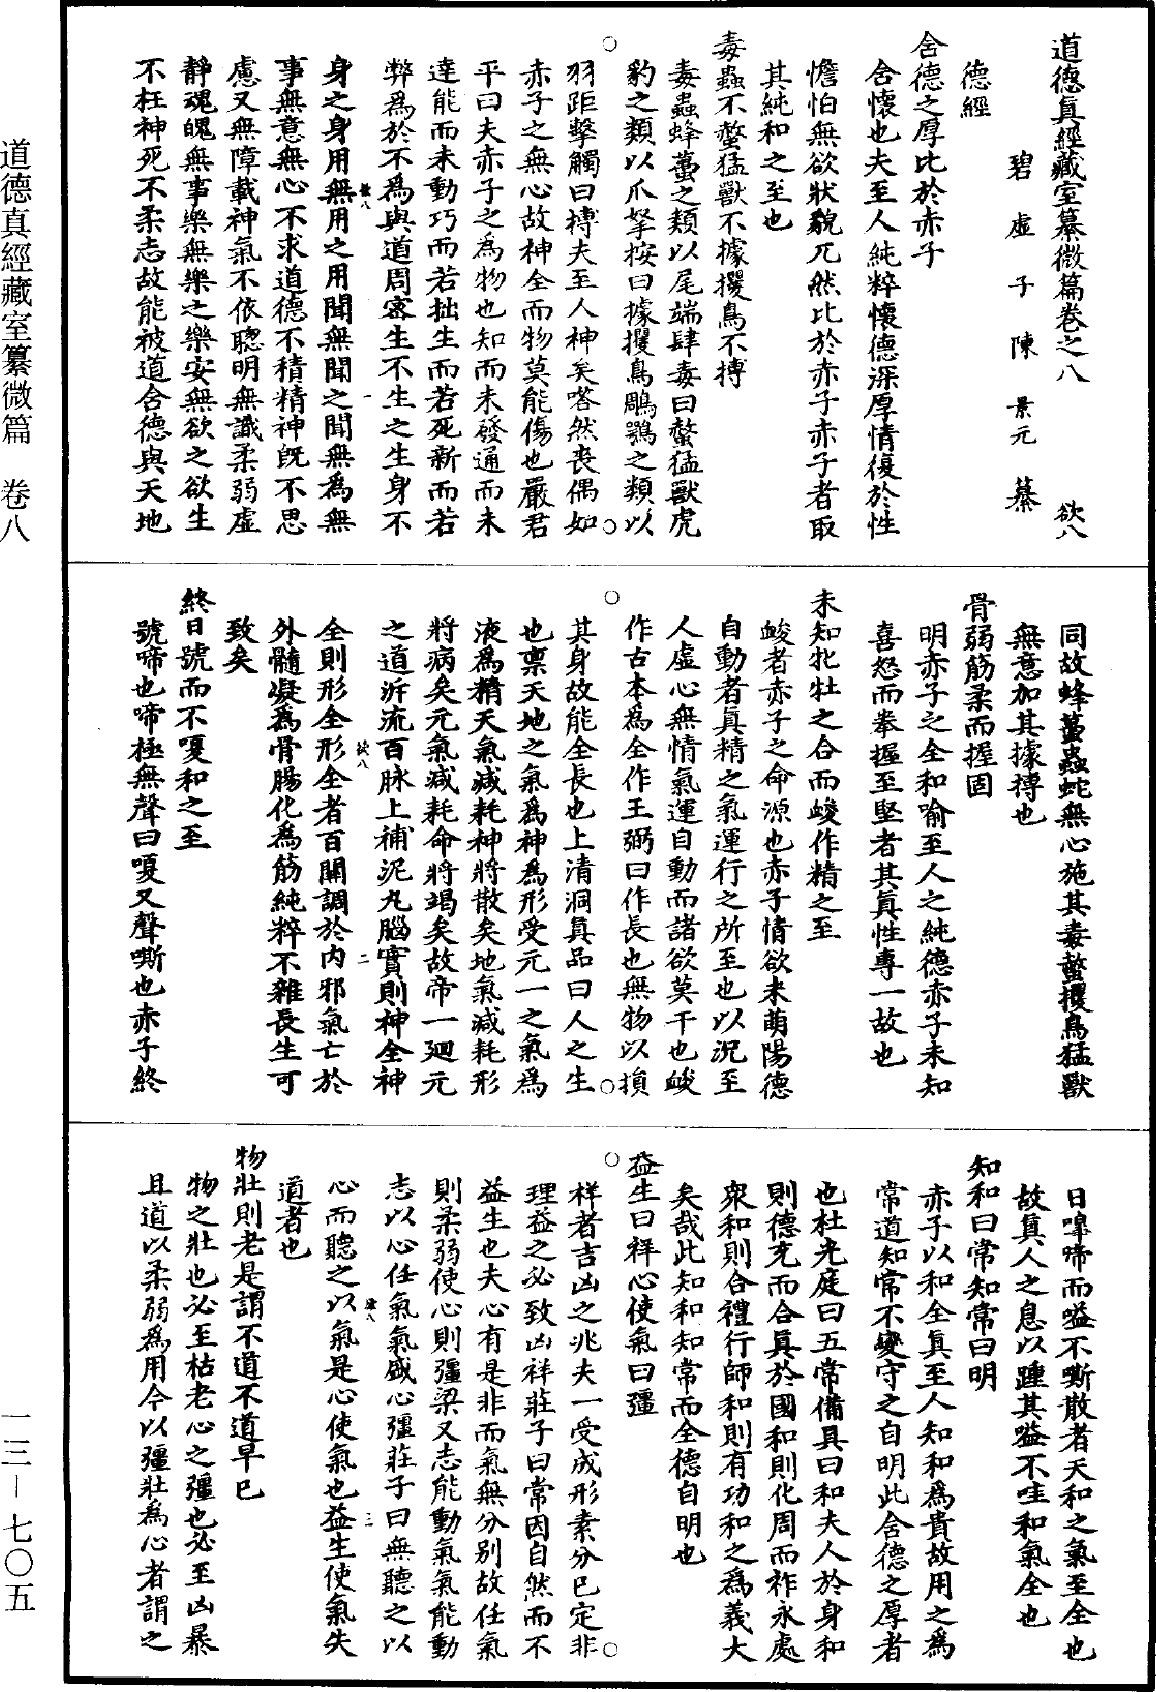 道德眞經藏室纂微篇卷之八　欲八
碧虛子陳景元纂
德經
含德之厚比於赤子
含懷也夫至人純粹懷德深厚情復於性
憺怕無欲狀貌兀然比於赤子赤子者取
其純和之至也
毒蟲不螫猛獸不據攫鳥不搏
毒蟲蜂蠆之類以尾端肆毒曰螫猛獸虎
豹之類以爪拏按曰據攫鳥鵰鶚之類以
羽距擊觸曰搏夫至人神矣嗒然喪偶如
赤子之無心故神全而物莫能傷也嚴君
平曰夫赤子之為物也知而未發通而未
達能而未動巧而若拙生而若死新而若
弊為於不為與道周密生不生之生身不
身之身用無用之用聞無聞之聞無為無
事無意無心不求道德不積精神既不思
慮又無障載神氣不依聰明無識柔弱虛
靜魂魄無事樂無樂之樂安無欲之欲生
不枉神死不柔志故能被道含德與天地
同故蜂蠆蟲蛇無心施其毒螫攫鳥猛獸
無意加其據搏也
骨弱筋柔而握固
明赤子之全和喻至人之純德赤子未知
喜怒而拳握至堅者其眞性專一故也
未知牝牡之合而峻作精之至
峻者赤子之命源也赤子情欲未萌陽德
自動者眞精之氣運行之所至也以況至
人虛心無情氣運自動而諸欲莫干也峻
作古本為全作王弼曰作長也無物以損
其身故能全長也上清洞眞品曰人之生
也稟天地之氣為神為形受元一之氣為
液為精天氣減耗神將散矣地氣減耗形
將病矣元氣减耗命將竭矣故帝一迴元
之道泝流百脉上補泥丸腦實則神全神
全則形全形全者百關調於内邪氣亡於
外髓凝為骨腸化為筋純粹不雜長生可
致矣
終日號而不嗄和之至
號啼也啼極無聲曰嗄又聲嘶也赤子終
日嘷啼而嗌不嘶散者天和之氣至全也
故真人之息以踵其嗌不哇和氣全也
知和曰常知常曰明
赤子以和全真至人知和為貴故用之為
常道知常不變守之自明此含德之厚者
也杜光庭曰五常備具曰和夫人於身和
則德充而合眞於國和則化周而祚永處
衆和則合禮行師和則有功和之為義大
矣哉此知和知常而全德自明也
益生曰祥心使氣曰彊
祥者吉凶之兆夫一受成形素分已定非
理益之必致凶祥莊子曰常因自然而不
益生也夫心有是非而氣無分別故任氣
則柔弱使心則彊梁又志能動氣氣能動
志以心任氣氣盛心彊莊子曰無聽之以
心而聽之以氣是心使氣也益生使氣失
道者也
物壯則老是謂不道不道早已
物之壯也必至枯老心之彊也必至凶暴
且道以柔弱為用今以彊壯為心者謂之
道德真經藏室纂微篇　卷八
一三－七〇五